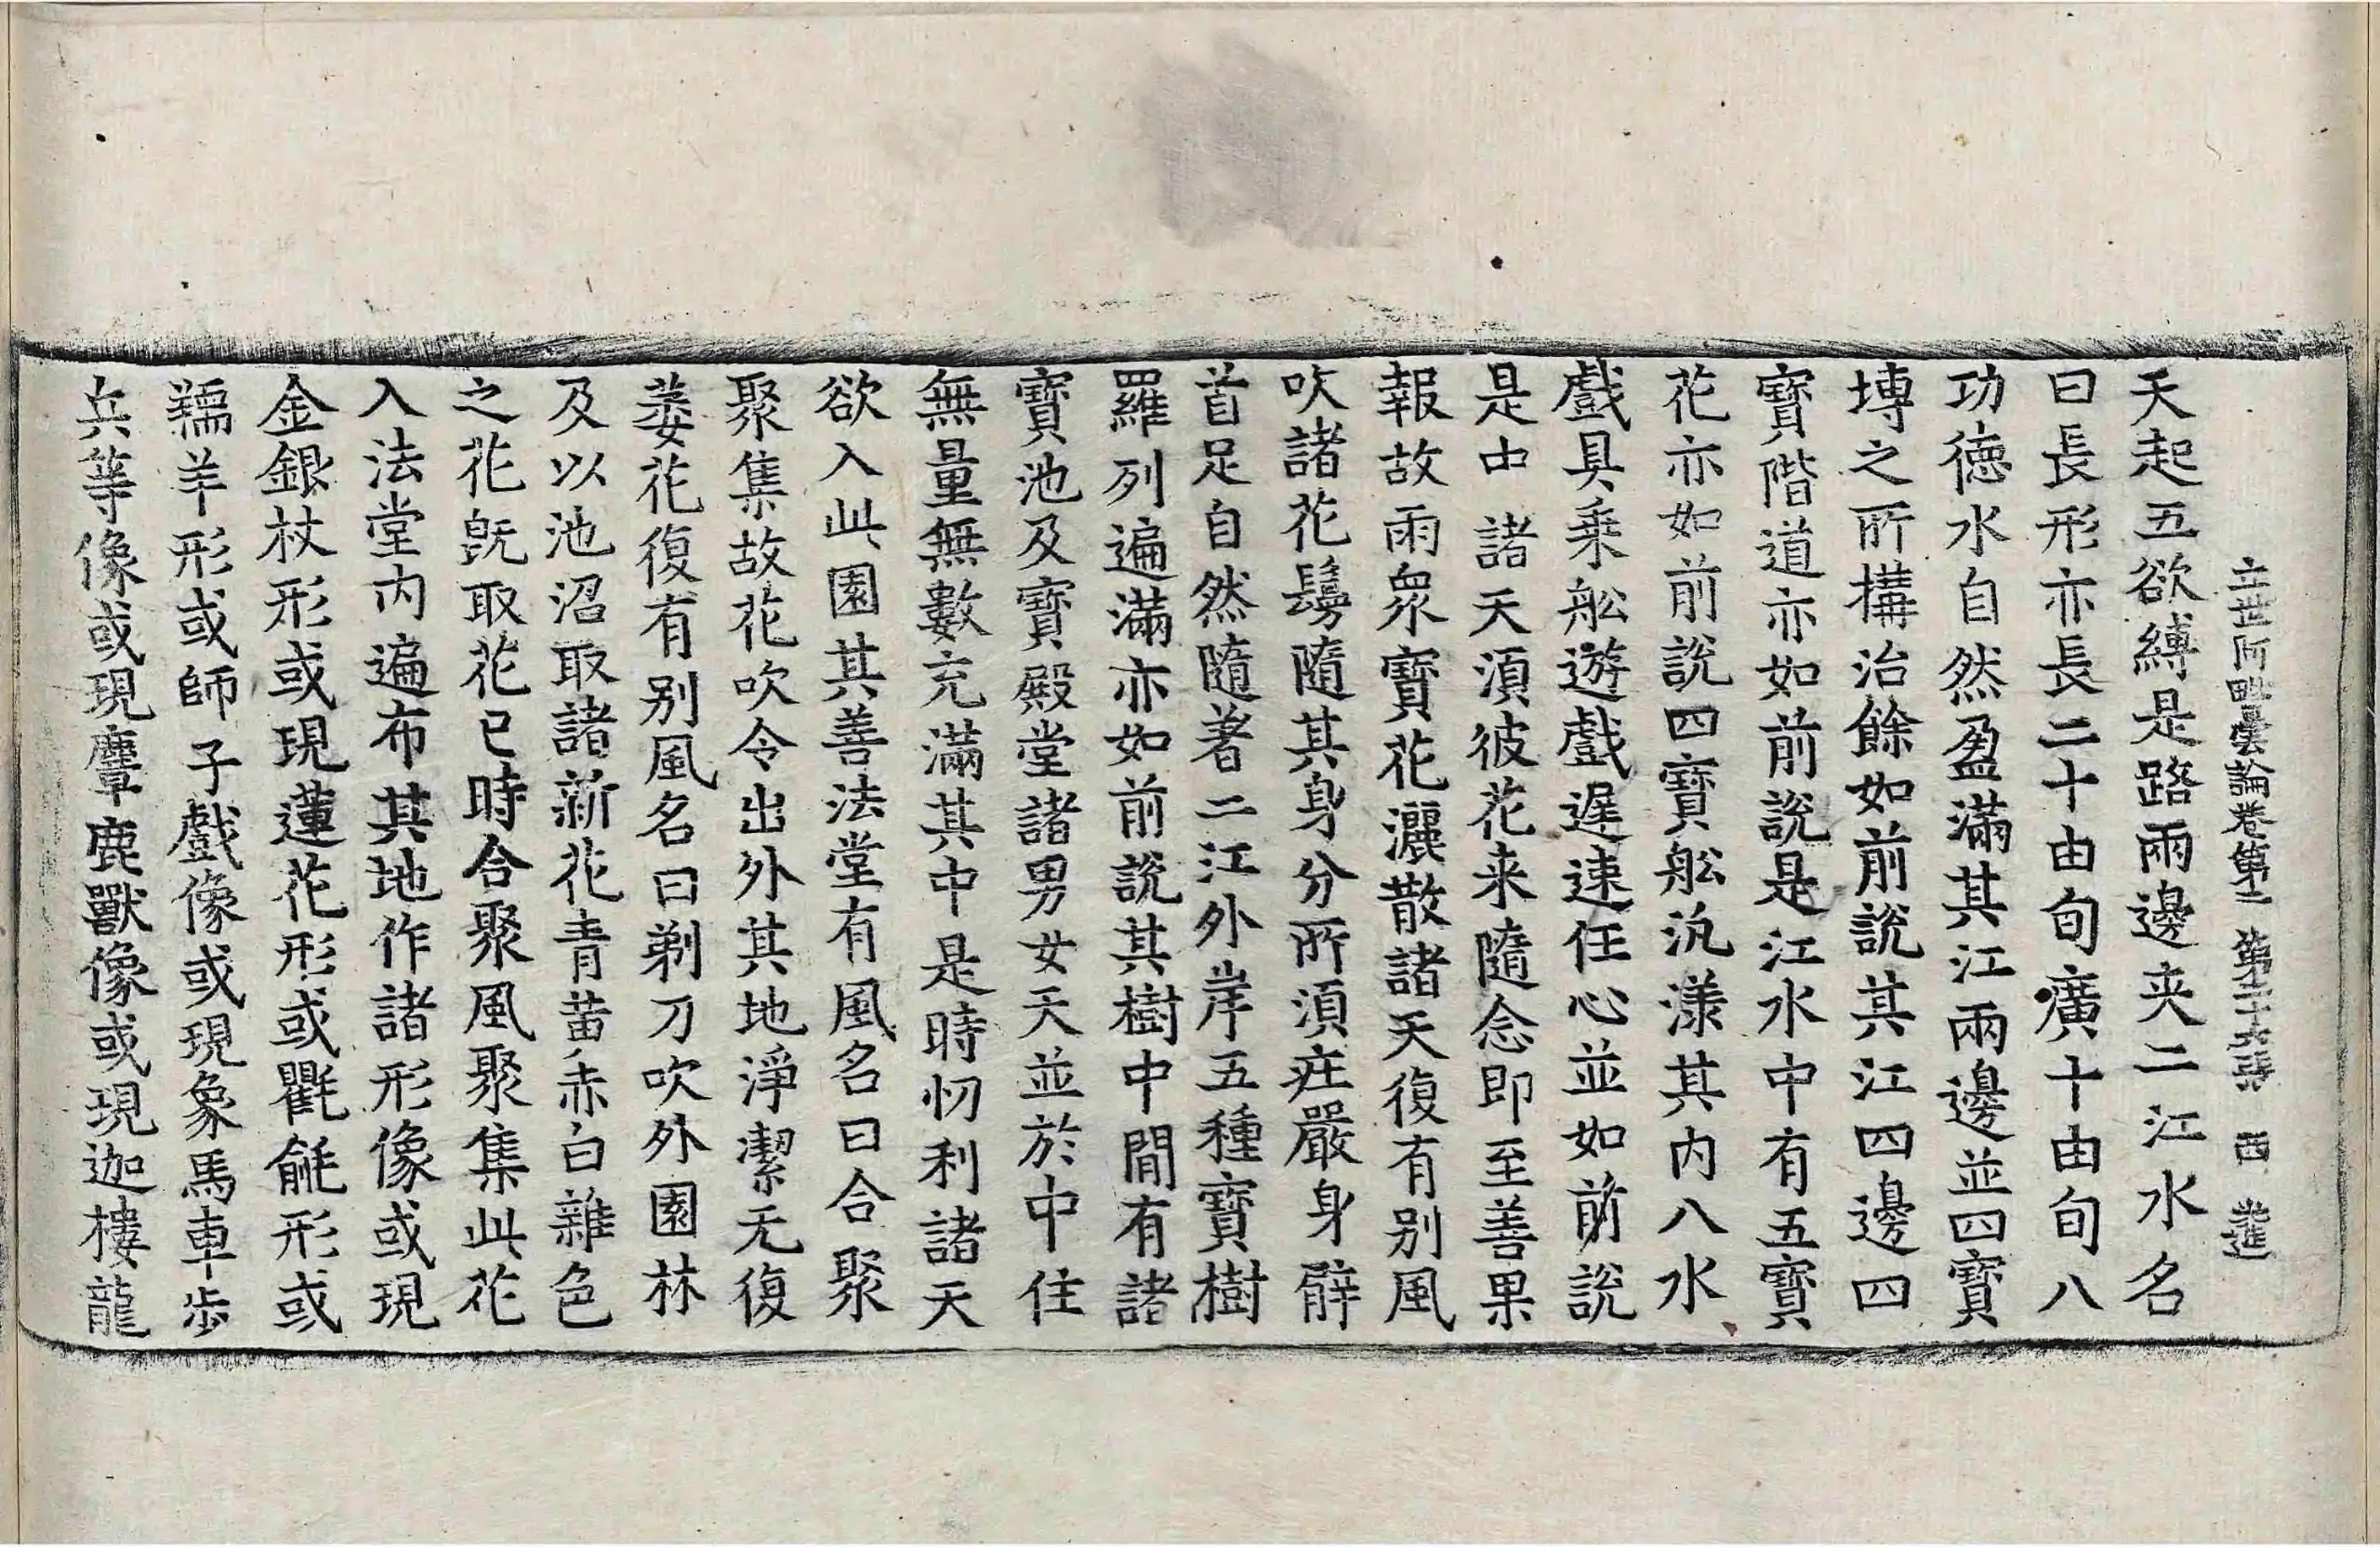 立世阿毗曇論卷第二 第二十六張 西 進
天起五欲縛是路兩邊夾二江水名
曰長形亦長二十由旬廣十由旬八
功徳水自然盈滿其江兩邊並四寶
塼之所構治餘如前說其江四邊四
寶階道亦如前說是江水中有五寶
花亦如前說四寶舩汎漾其内八水
戲具乗舩遊戲遅速任心並如前說
是中諸天湏彼花来隨念即至善果
報故雨衆寶花灑散諸天復有别風
吹諸花鬘隨其身分所湏疘嚴身臂
首足自然隨著二江外岸五種寶樹
羅列遍滿亦如前說其樹中閒有諸
寶池及寶殿堂諸男女天並於中住
無量無數充滿其中是時忉利諸天
欲入此園其善法堂有風名曰合聚
聚集故花吹令出外其地淨潔无復
萎花復有别風名曰剃刀吹外園林
及以池沼取諸新花青黄赤白雜色
之花旣取花已時合聚風聚集此花
入法堂内遍布其地作諸形像或現
金銀杖形或現蓮花形或氍毹形或
羺羊形或師子戲像或現象馬車歩
兵等像或現麞鹿獸像或現迦樓龍